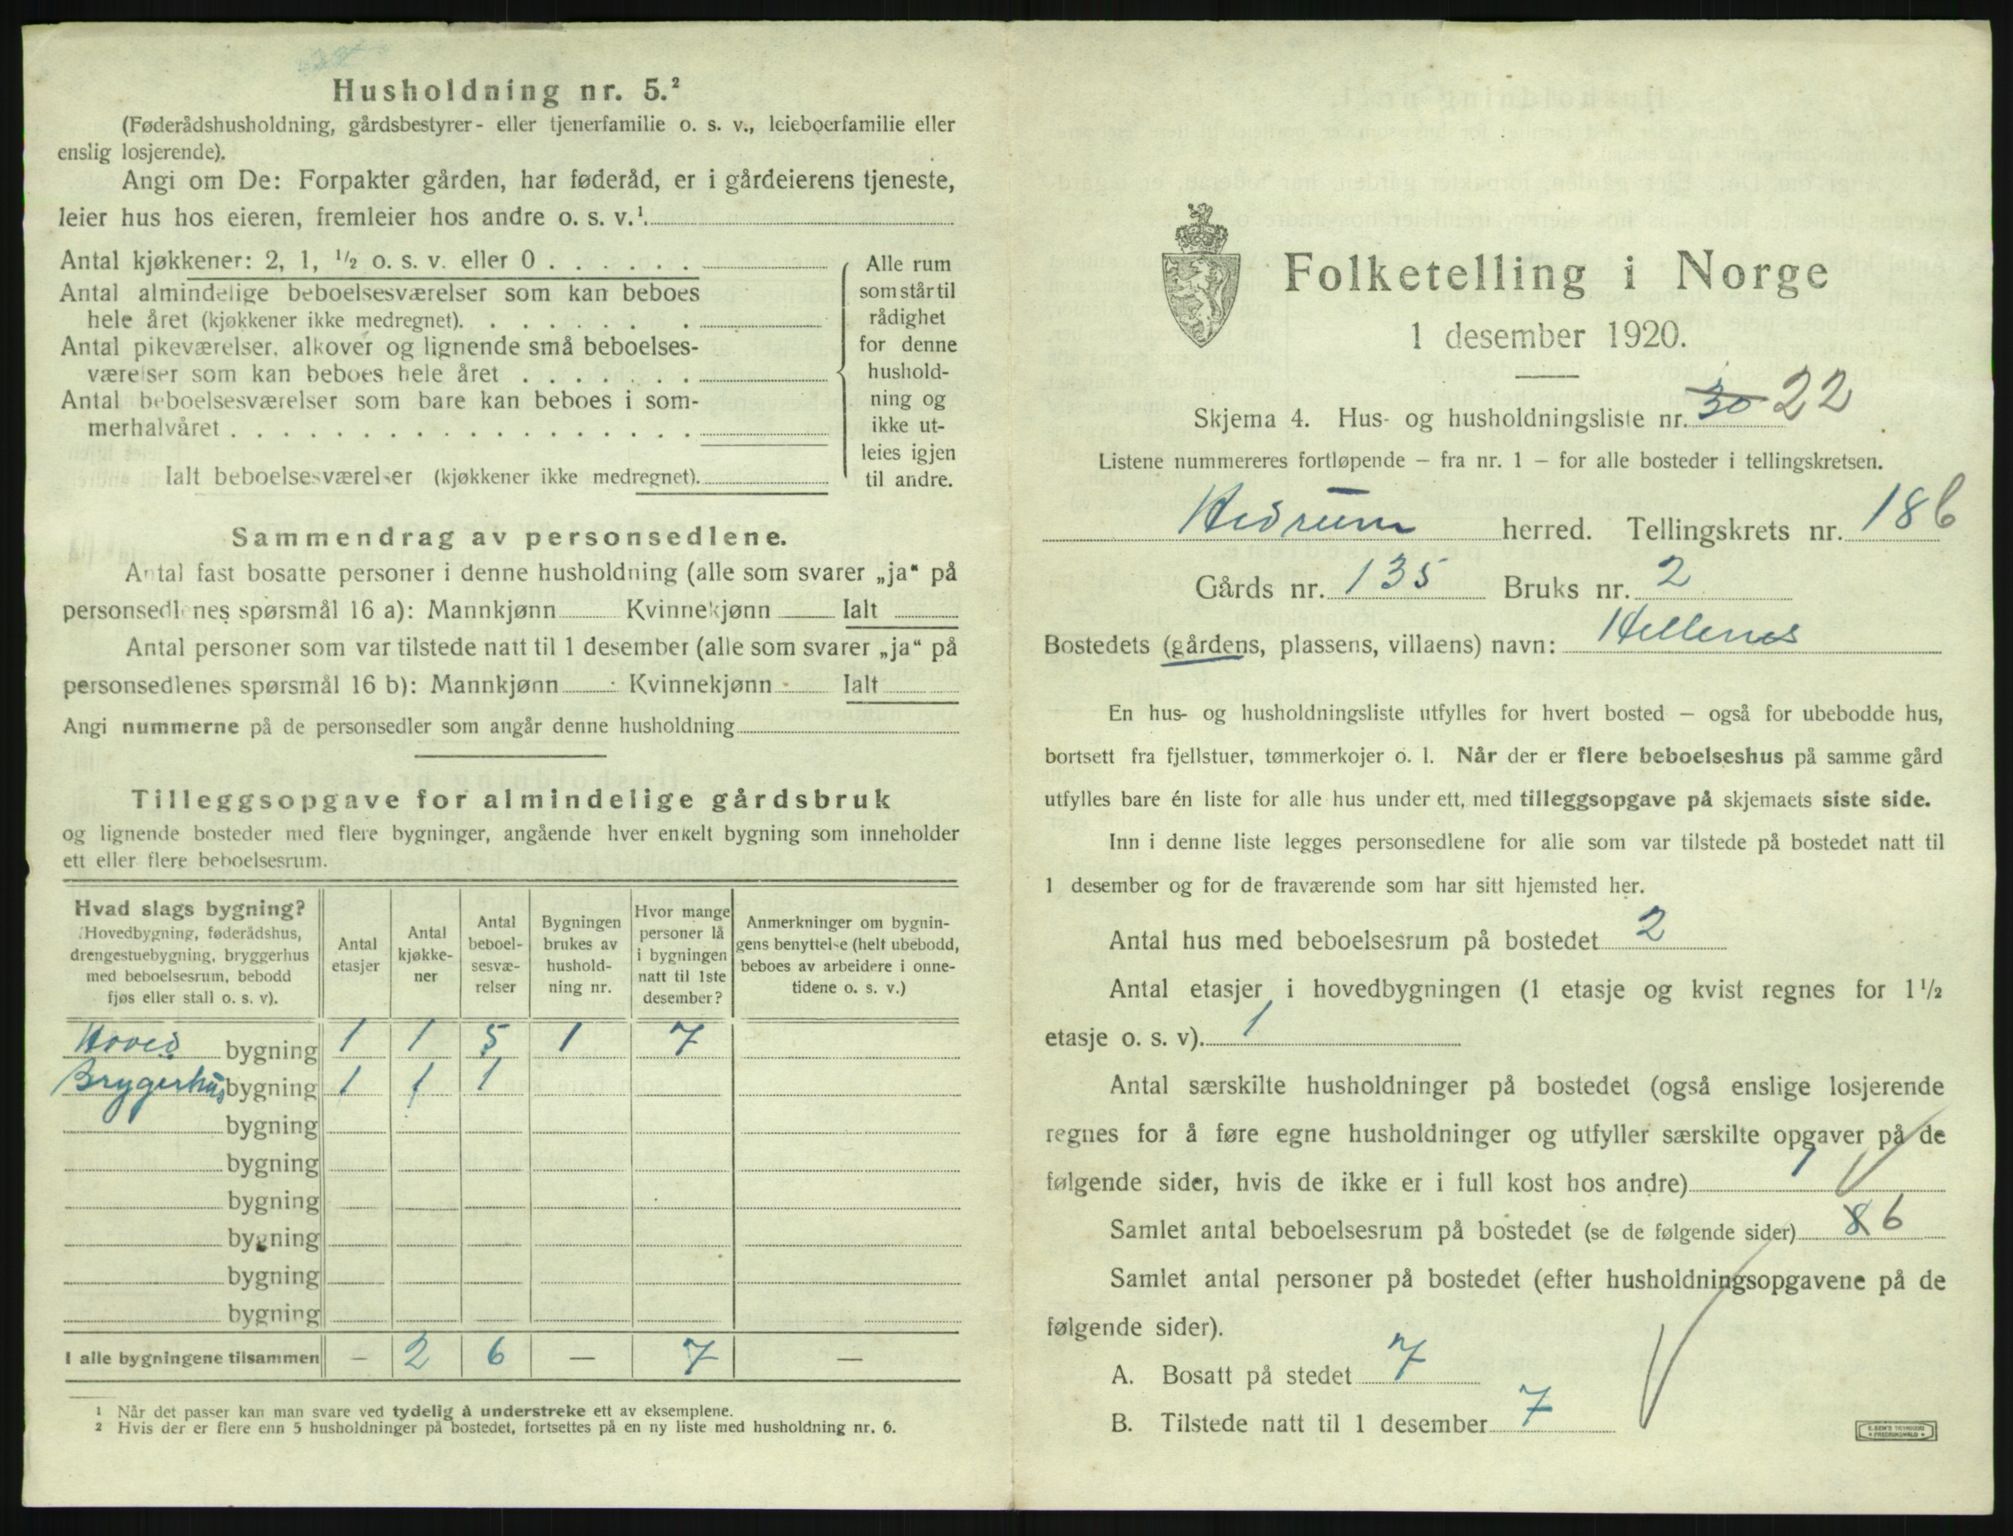 Husholdning nr. 5.²
(Føderådshusholdning, gårdsbestyrer- eller tjenerfamilie o. s. v., leieboerfamilie eller
enslig losjerende).
Angi om De: Forpakter gården, har føderåd, er i gårdeierens tjeneste,
leier hus hos eieren, fremleier hos andre o. s. v.¹
Antal kjøkkener: 2, 1, ½ o. s. v. eller 0 . . . . . .
Antal almindelige beboelsesværelser som kan beboes
hele året (kjøkkener ikke medregnet). . . . . . . .
Antal pikeværelser, alkover og lignende små beboelses-
værelser som kan beboes hele året . . . . . . .
Antal beboelsesværelser som bare kan beboes i som-
merhalvåret . . . . . . . . . . . . . . . . . .
Ialt beboelsesværelser (kjøkkener ikke medregnet).
Alle rum
som står til
rådighet
for denne
hushold-
ning og
ikke ut-
leies igjen
til andre.
Sammendrag av personsedlene.
Antal fast bosatte personer i denne husholdning (alle som svarer „ja“ på
personsedlenes spørsmål 16 a): Mannkjønn Kvinnekjønn Ialt
Antal personer som var tilstede natt til 1 desember (alle som svarer „ja“ på
personsedlenes spørsmål 16 b): Mannkjønn Kvinnekjønn Ialt
Angi nummerne på de personsedler som angår denne husholdning
Tilleggsopgave for almindelige gårdsbruk
og lignende bosteder med flere bygninger, angående hver enkelt bygning som inneholder
ett eller flere beboelsesrum.
Hvad slags bygning?
(Hovedbygning, føderådshus,
drengestuebygning, bryggerhus
med beboelsesrum, bebodd
fjøs eller stall o. s. v).
Antal
etasjer
Antal
kjøkke-
ner
Antal
beboel-
sesvæ-
relser
Bygningen
brukes av
hushold-
ning nr.
Hvor mange
personer lå
i bygningen
natt til 1ste
desember?
Anmerkninger om bygnin-
gens benyttelse (helt ubebodd,
beboes av arbeidere i onne-
tidene o. s. v.)
Hoved bygning 1 1 5 1 7
Brygerhus bygning 1 1 1
bygning
bygning
bygning
bygning
bygning
bygning
I alle bygningene tilsammen — 2 6 — 7 —
¹ Når det passer kan man svare ved tydelig å understreke ett av eksemplene.
² Hvis der er flere enn 5 husholdninger på bostedet, fortsettes på en ny liste med husholdning nr. 6.
Folketelling i Norge
1 desember 1920.
Skjema 4. Hus- og husholdningsliste nr. 30 22
Listene nummereres fortløpende – fra nr. 1 – for alle bosteder i tellingskretsen.
Hedrum herred. Tellingskrets nr. 18 6
Gårds nr. 135 Bruks nr. 2
Bostedets (gårdens, plassens, villaens) navn: Hellenes
En hus- og husholdningsliste utfylles for hvert bosted – også for ubebodde hus,
bortsett fra fjellstuer, tømmerkojer o. l. Når der er flere beboelseshus på samme gård
utfylles bare én liste for alle hus under ett, med tilleggsopgave på skjemaets siste side.
Inn i denne liste legges personsedlene for alle som var tilstede på bostedet natt til
1 desember og for de fraværende som har sitt hjemsted her.
Antal hus med beboelsesrum på bostedet 2
Antal etasjer i hovedbygningen (1 etasje og kvist regnes for 1½
etasje o. s. v). 1
Antal særskilte husholdninger på bostedet (også enslige losjerende
regnes for å føre egne husholdninger og utfyller særskilte opgaver på de
følgende sider, hvis de ikke er i full kost hos andre) 1
Samlet antal beboelsesrum på bostedet (se de følgende sider) 8 6
Samlet antal personer på bostedet (efter husholdningsopgavene på de
følgende sider).
A. Bosatt på stedet 7
B. Tilstede natt til 1 desember 7